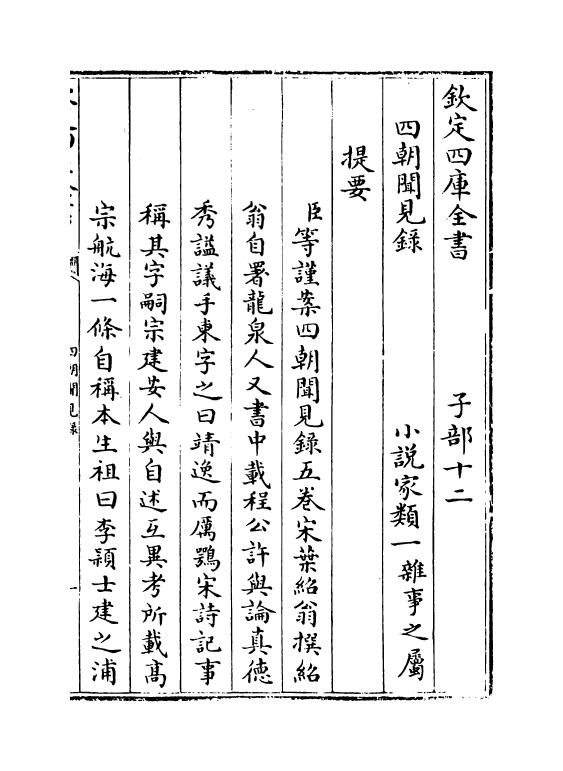 欽定四庫全書 子部十二
四朝聞見錄 小説家類一雜事之屬
提要
臣等謹案四朝聞見錄五卷宋葉紹翁撰紹
翁自署龍泉人又書中載程公許與論真德
秀諡議手柬字之曰靖逸而厲鶚宋詩記事
稱其字嗣宗建安人與自述互異考所載髙
宗航海一條自稱本生祖曰李穎士建之浦
四朝聞見錄
一